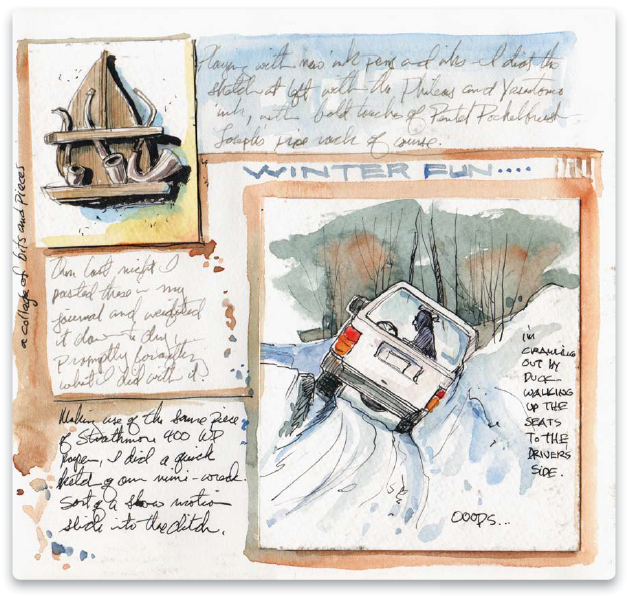 Playing with new ink pens and inks - I did the
sketch at left with the Phileas and Yasutomo
ink, with bold touches of Pentel Pocketbrush.
Joseph's pipe rack of course.
WINTER FUN....
a collage of bits and pieces
last night I
pasted these in my
journal and weighted
it down to dry,
promptly forgetting
what I did with it.
Making use of the same piece
of Strathmore 900 WP
paper, I did a quick
sketch of our mini-wreck.
Sort of a slow motion
slide into the ditch.
I'M
CRAWLING
OUT BY
DUCK
WALKING
UP THE
SEATS
TO THE
DRIVERS
SIDE.
OOOPS...